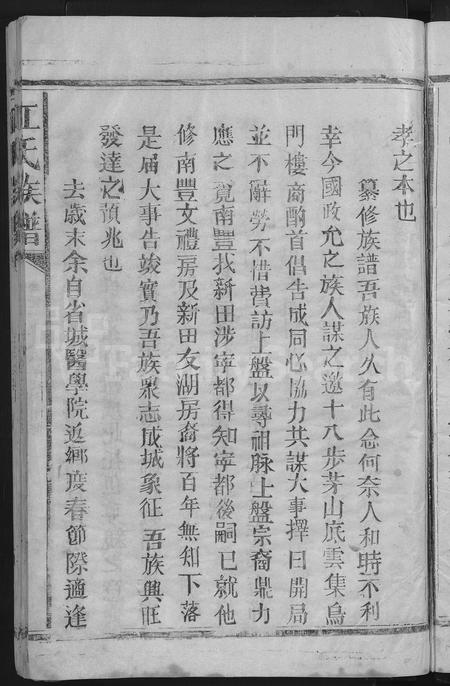 孝之本也
纂修族譜吾族人久有此念何奈人和時不利
幸今國政允之族人謀之邀十八步茅山底雲集烏
門樓商酌首倡告成同心協力共謀大事擇日開局
並不辭勞不惜費訪上盤以尋祖脉上盤宗裔鼎力
應之覓南豐找新田涉寧都得知寧都後嗣已就他
修南豐文禮房及新田友湖房裔將百年無知下落
是届大事告竣實乃吾族眾志成城象征吾族興旺
發達之預兆也
去歲末余自省城醫學院返鄉度春節際適逢
江氏族譜